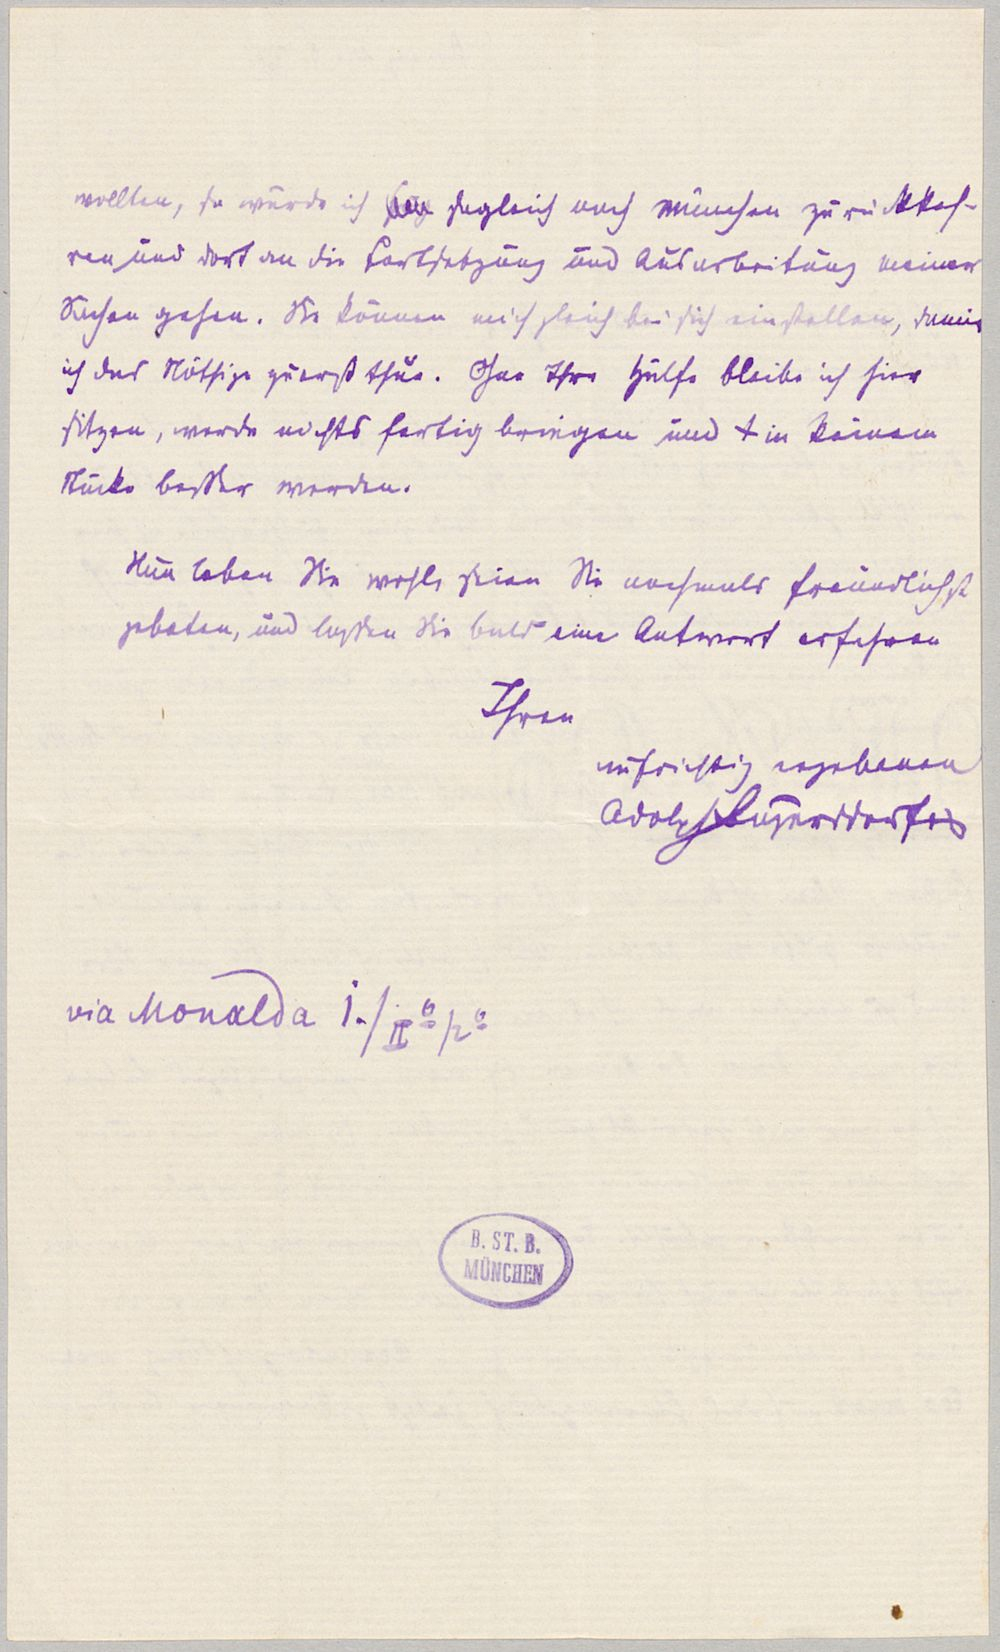 wollten, so würde ich sogleich nach München zurückkeh-
ren und dort an die Fortsetzung und Ausarbeitung meiner
Sachen gehen. Sie können mich gleich bei sich einstellen, damit
ich das Nöthige zuerst thue. Ohne Ihre Hülfe bleibe ich hier
sitzen, werde nichts fertig bringen und in keinem
Stücke besser werden.
Nun leben Sie wohl, seien Sie nochmals freundlichst
gebeten, und lassen Sie bald eine Antwort erfahren
Ihren
aufrichtig ergebenen
Adolf Bayersdorfer
via Monalda 1./II º/2º
B. ST. B.
MÜNCHEN